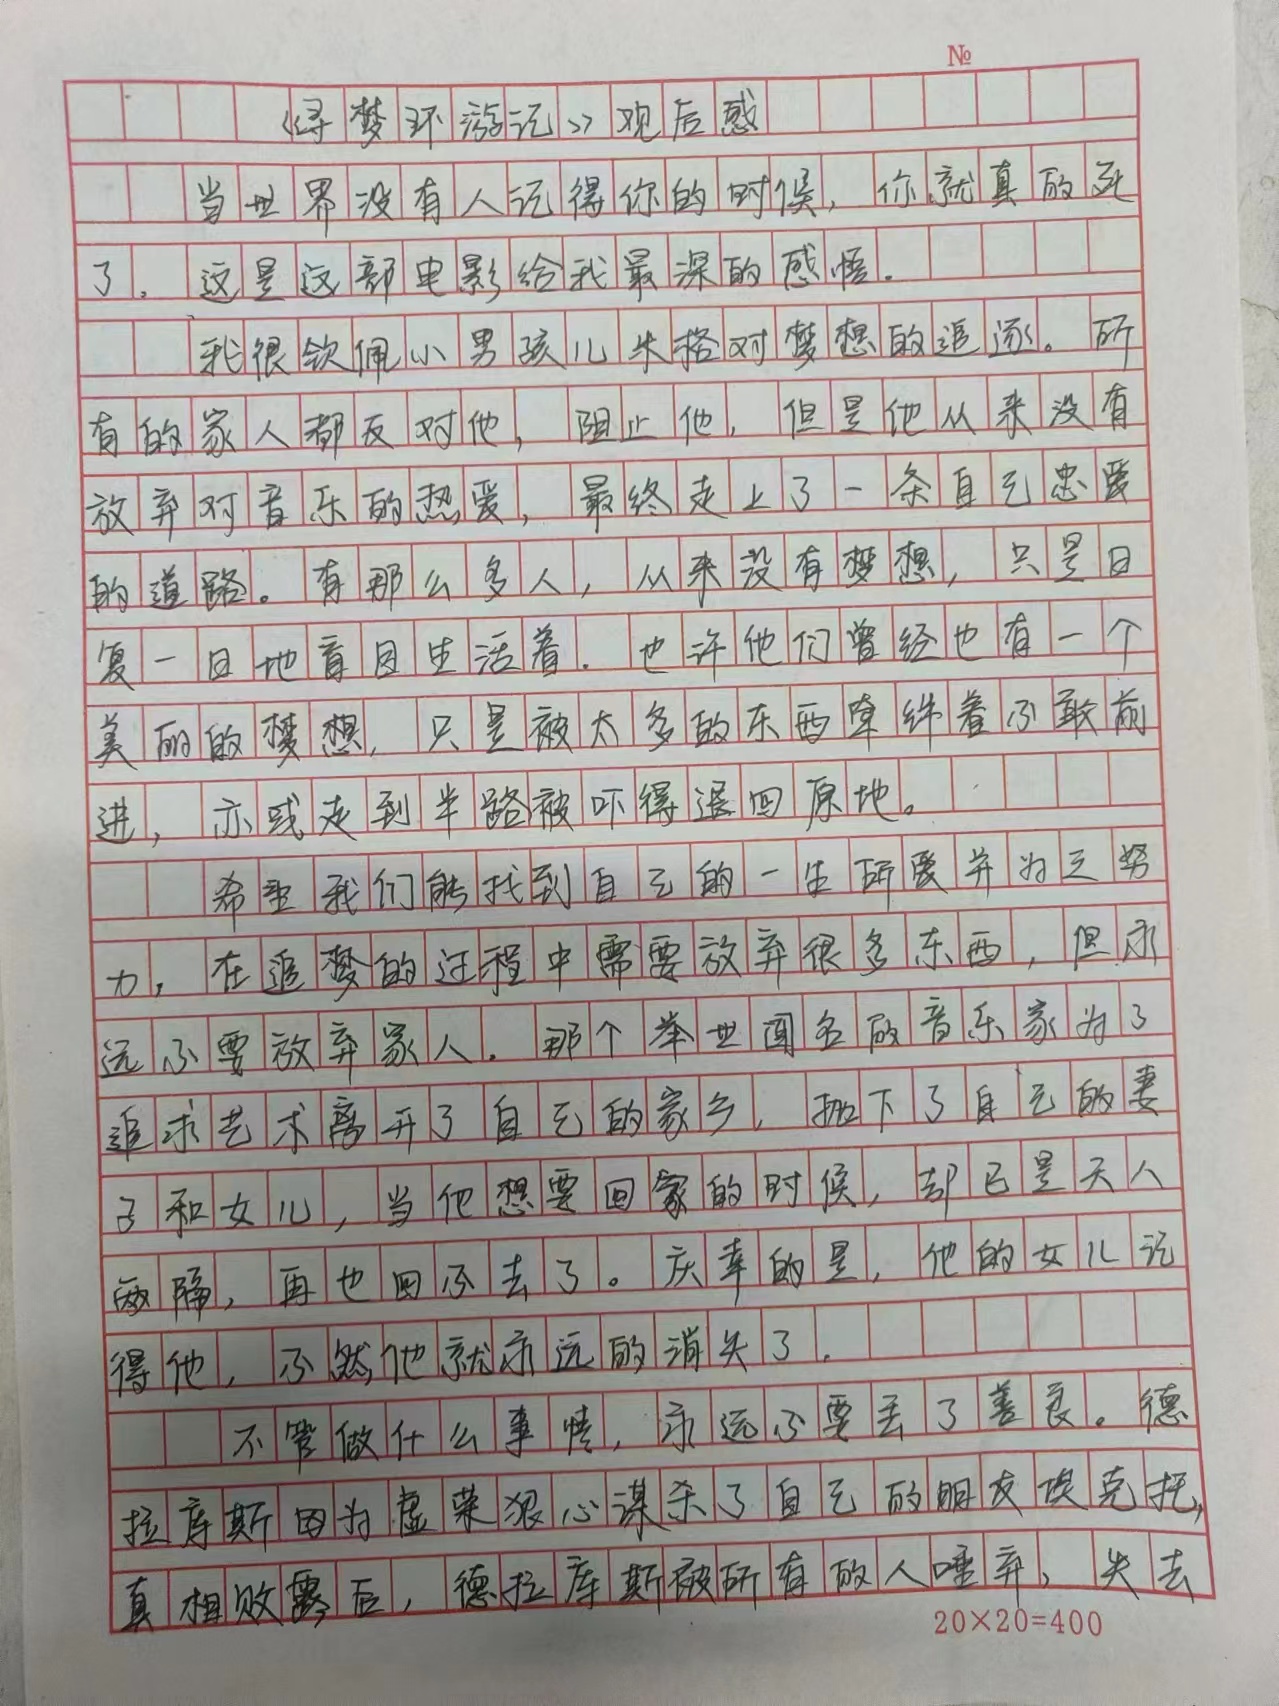 №
《寻梦环游记》观后感
当世界没有人记得你的时候，你就真的死
了．这是这部电影给我最深的感悟．
我很钦佩小男孩儿米格对梦想的追逐。所
有的家人都反对他，阻止他，但是他从来没有
放弃对音乐的热爱，最终走上了一条自己忠爱
的道路。有那么多人，从来没有梦想，只是日
复一日地盲目生活着．也许他们曾经也有一个
美丽的梦想，只是被太多的东西牵绊着不敢前
进，亦或走到半路被吓得退回原地。
希望我们能找到自己的一生所爱并为之努
力，在追梦的过程中需要放弃很多东西，但永
远不要放弃家人．那个举世闻名的音乐家为了
追求艺术离开了自己的家乡，抛下了自己的妻
子和女儿，当他想要回家的时候，却已是天人
两隔，再也回不去了。庆幸的是，他的女儿记
得他，不然他就永远的消失了．
不管做什么事情，永远不要丢了善良。德
拉库斯因为虚荣狠心谋杀了自己的朋友埃克托，
真相败露后，德拉库斯被所有的人唾弃，失去
20×20=400